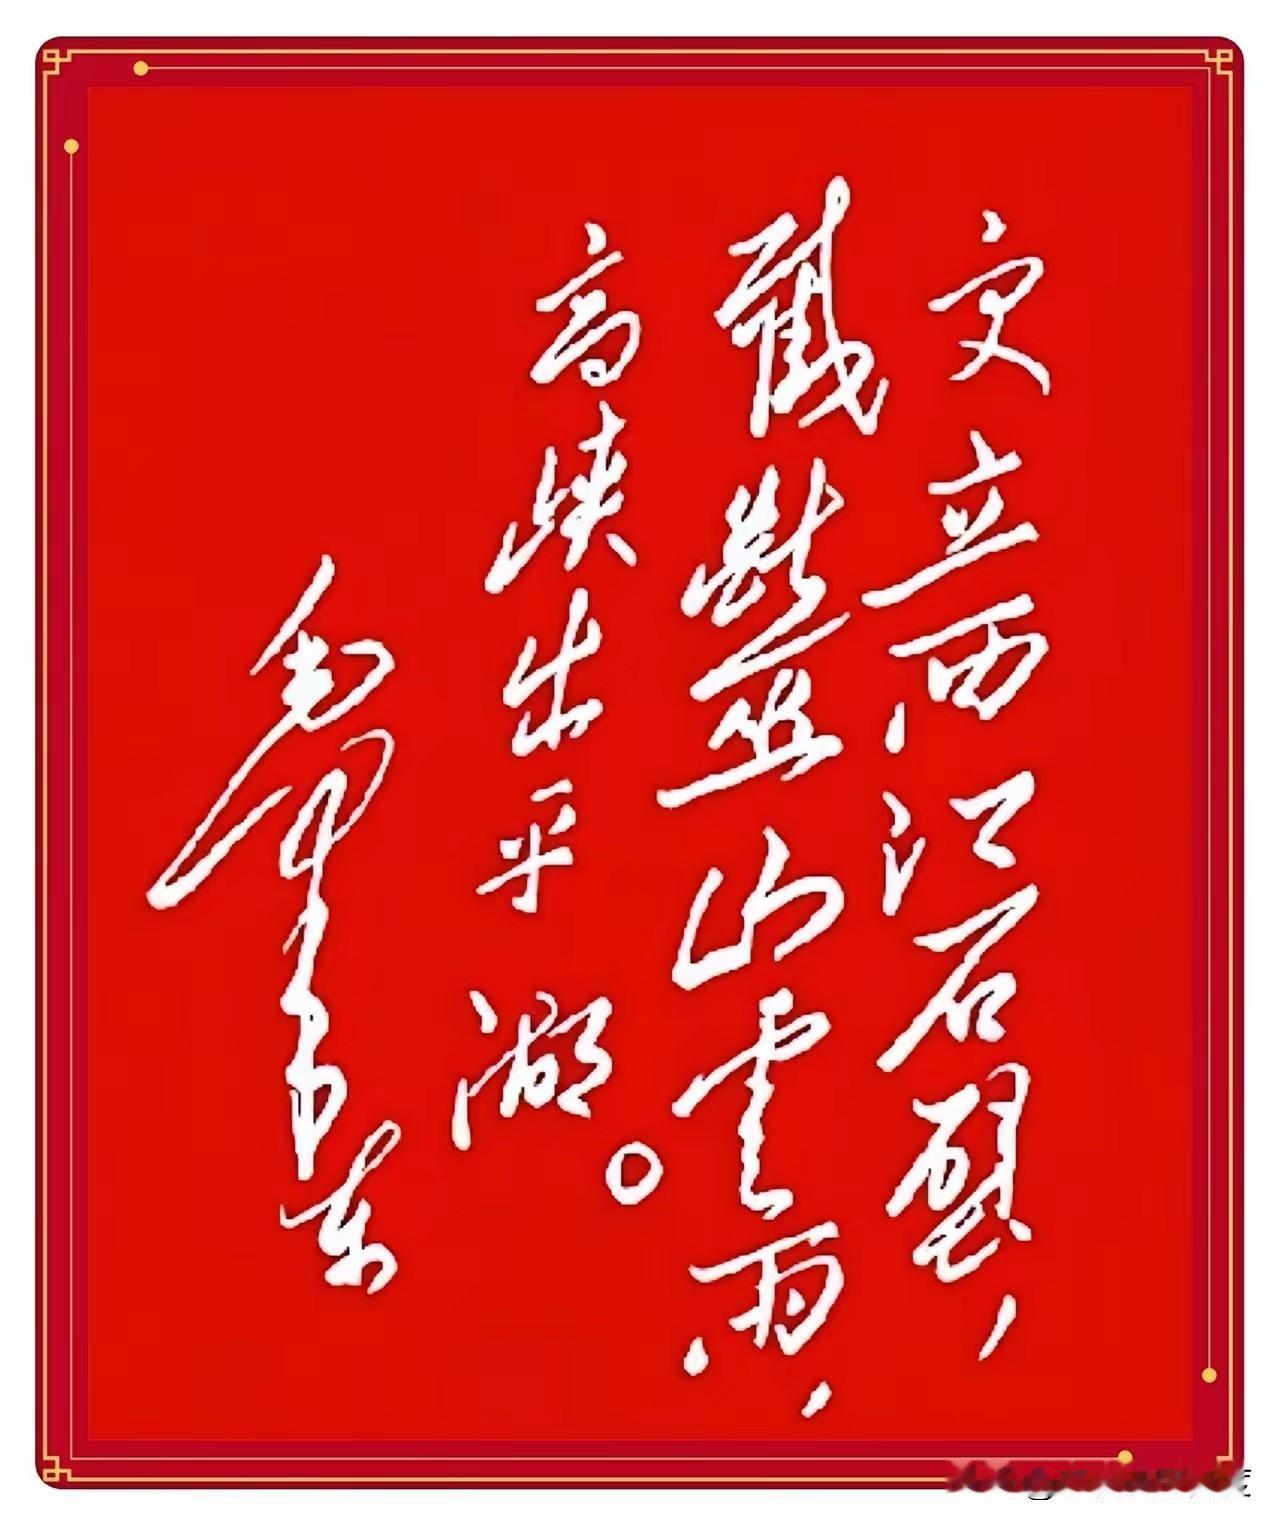 更立西江石壁，
截断巫山云雨，
高峡出平湖。
毛泽东